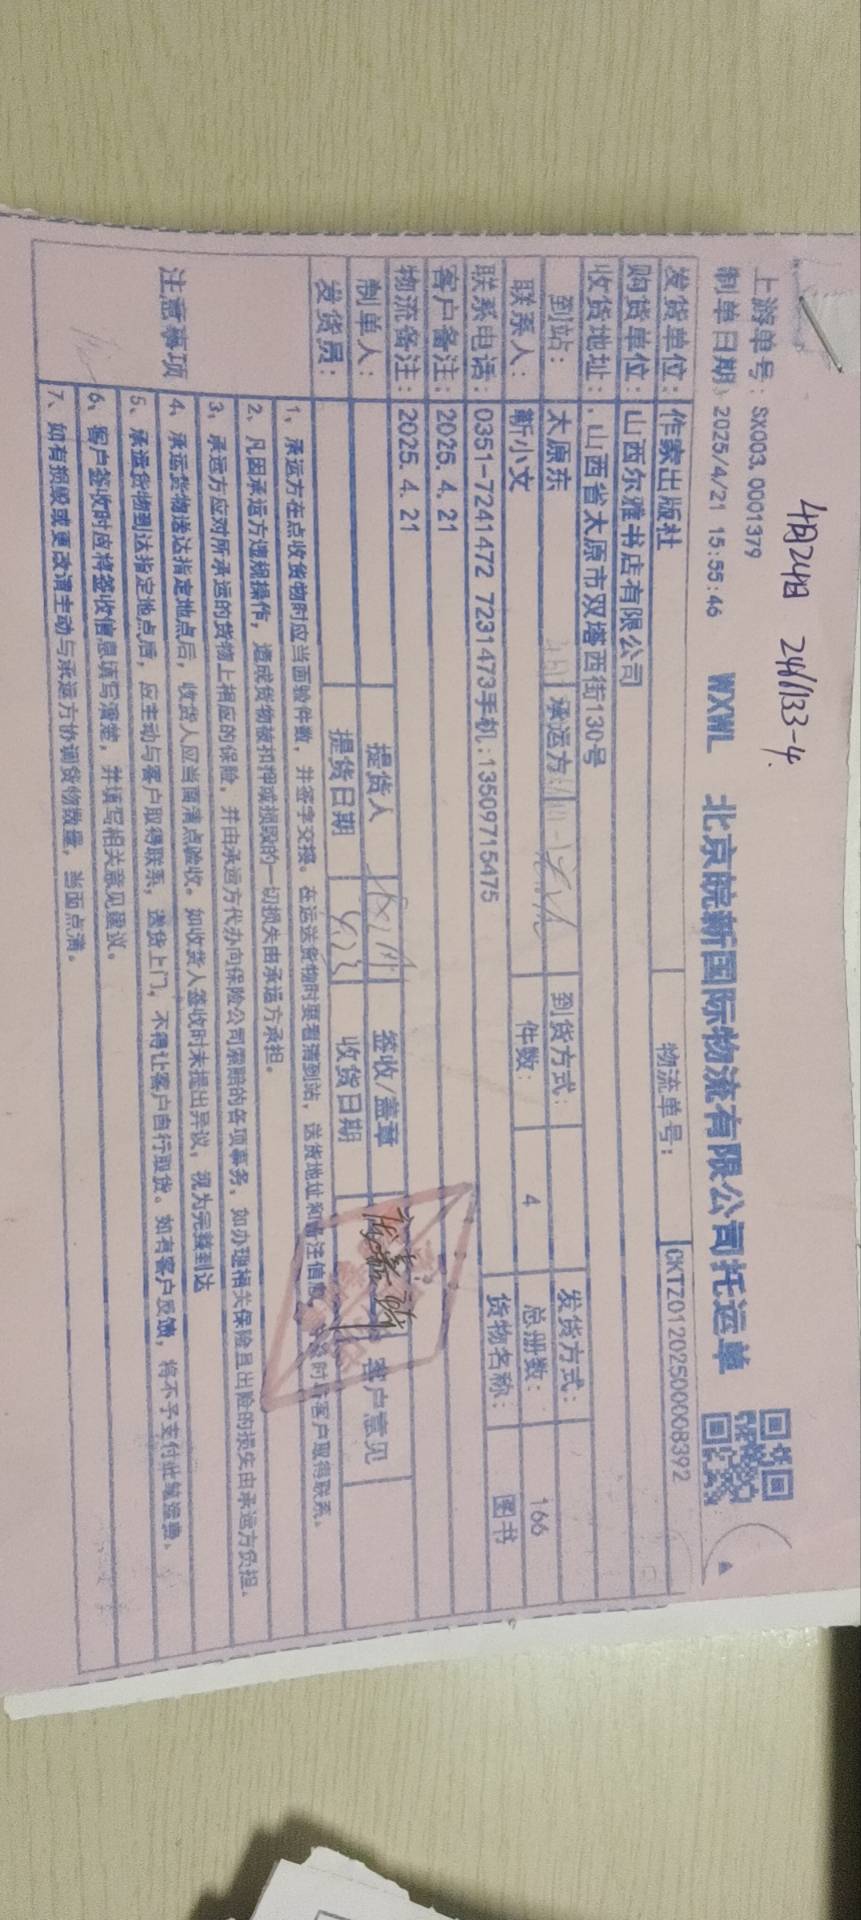 4月24日 241133-4.
上游单号：SX003.0001379
制单日期：2025/4/21 15:55:46 WXWL 北京皖新国际物流有限公司托运单
发货单位：作家出版社 物流单号：CKTZ01202500008392
购货单位：山西尔雅书店有限公司
收货地址：.山西省太原市双塔西街130号
到站：太原东 承运方 到货方式： 发货方式：
联系人：靳小文 件数：4 总册数：166
联系电话：0351-7241472 7231473手机:13509715475 货物名称：图书
客户备注：2025.4.21
物流备注：2025.4.21
制单人： 提货人 签收/盖章 客户意见
发货员： 提货日期 4.23 收货日期
注意事项
1、承运方在点收货物时应当面验件数，并签字交接。在运送货物时要看清到站，送货地址和备注信息，时与客户取得联系。
2、凡因承运方违规操作，造成货物被扣押或损毁的一切损失由承运方承担。
3、承运方应对所承运的货物上相应的保险，并由承运方代办向保险公司索赔的各项事务，如办理相关保险且出险的损失由承运方负担。
4、承运货物送达指定地点后，收货人应当面清点验收。如收货人签收时未提出异议，视为完整到达
5、承运货物到达指定地点后，应主动与客户取得联系，送货上门，不得让客户自行取货。如有客户反馈，将不予支付此笔运费。
6、客户签收时应将签收信息填写清楚，并填写相关意见建议。
7、如有损毁或更改请主动与承运方协调货物数量，当面点清。